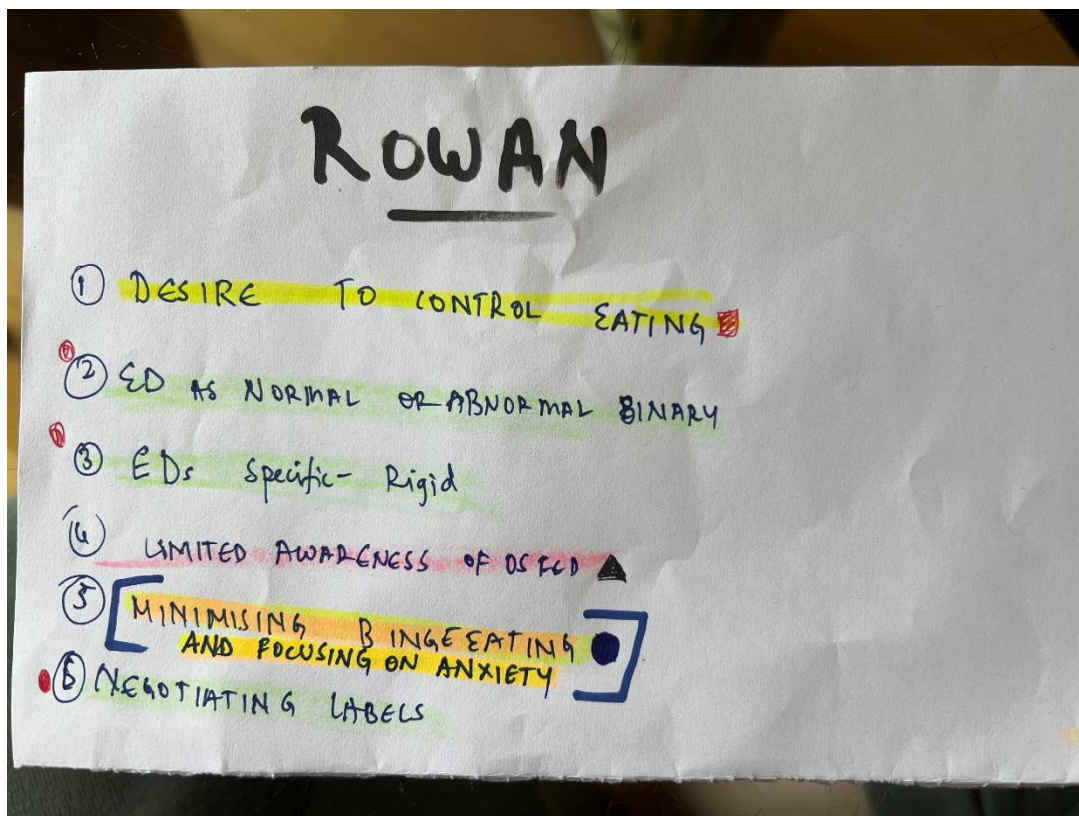 ROWAN
① DESIRE TO CONTROL EATING
② ED AS NORMAL OR ABNORMAL BINARY
③ EDs Specific- Rigid
④ LIMITED AWARENESS OF OSFED
⑤ MINIMISING BINGE EATING
AND FOCUSING ON ANXIETY
⑥ NEGOTIATING LABELS